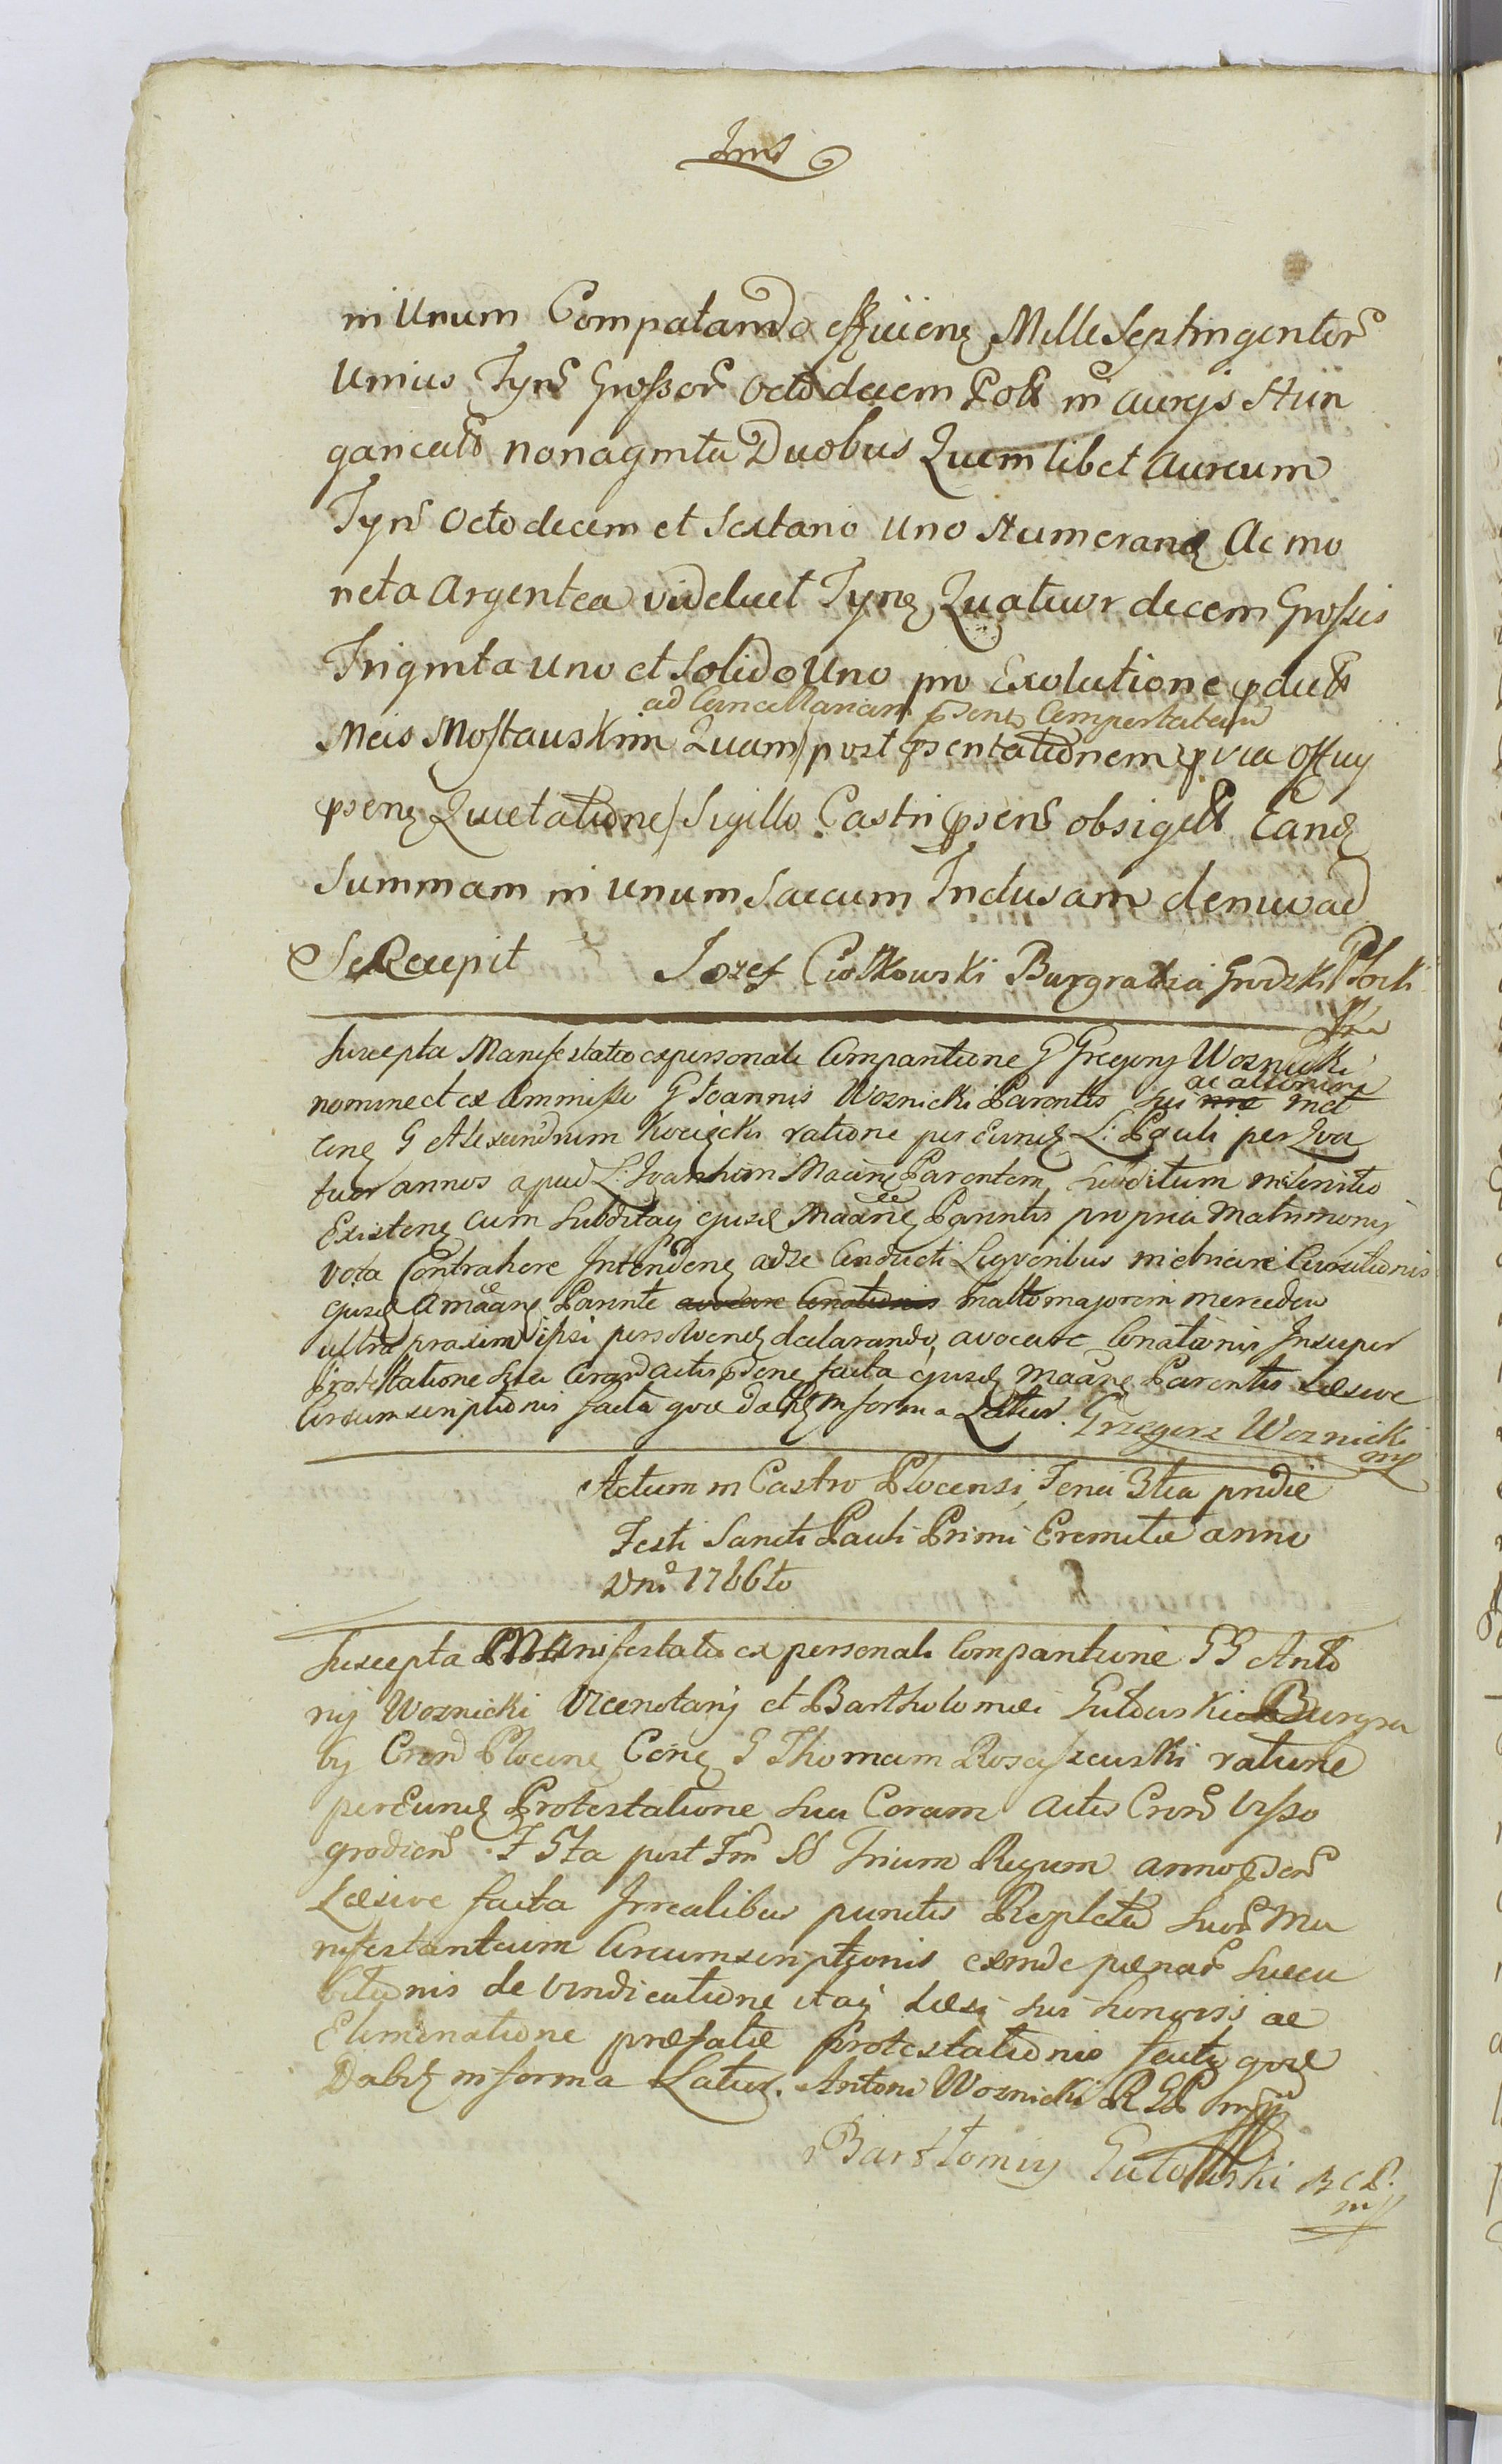 in Unum Computando efficienę Mille Septingentor
Unius Tyn Grossor Octodecim Poll in aureis Hun
garicalb nonaginta Duobus Quemlibet Aureum
Tyn Octodecem et Sextano Uno Numerandę Ac mo
neta Argentea videlicet Tynę Quatuor decem Grossis
Triginta Uno et Solido Uno pro Exolutione
ad Cancellariam psentę Comportatam
Meis Mostauskim Quam post psentationem Officy
psenę Quietatione Sigillo Castri psen obsigill Eandę
Summam in Unum Saccum Inclusam denuo ad
Se Recepit Jozef Ciołkowski Burgrabia Grodzki Płocki
Suscepta Manifestatio ex personali Comparitione G Gregory Woznicki
nomine et ex Commisso G Joannis Woznicki Parentis Sui
ac actionem
conę G Alexandrum Kocięcki ratione per Eundę L: Pauli per Qua
tuor annos apud L: Joannem Maanę Parentem Subditum in Servitio
Existenę cum Subditaq ejusdę Maanę Parentis propria Matrimonij
Vota Contrahere Intendenę ad se Conducti
ejusdę a Maanę Parente avocare Conationis multo majorem mercedem
ultra proxim ipsi persolvendę declarando, avocare Conationis Insuper
Protestatione Actis psenę facta ejusdę Maanę Parentis Læsive
Circumscriptionis facta qvæ Dabitę in forma Latius. Grzegorz Woznicki
mp
Actum in Castro Plocensi Feria 3tia pridie
Festi Sancti Pauli Primi Eremitæ anno
Dni 1766to
Suscepta Manifestatio ex personali Comparitione GG Anto
nij Woznicki Vicenotarij et Bartholomæi Gutowski Burgra
bij Plocenę Conę G Thomam Rosciszewski ratione
per Eundę Protestatione Sua Coram Actis Visso
grodien F 5ta post Fm SS Trium Regum anno psen
Læsive facta Irrealibus punctis Repleta Suor Ma
nifestantium Circumscriptionis exinde pænar Succu
bitionis de vindicatione itaq Læsi Sui honoris ac
Eliminatione præfatæ protestationis facta qvæ
Dabitę in forma Latius. Antoni Woznicki R G P mp
Bartłomiy Gutowski B C P.
mp